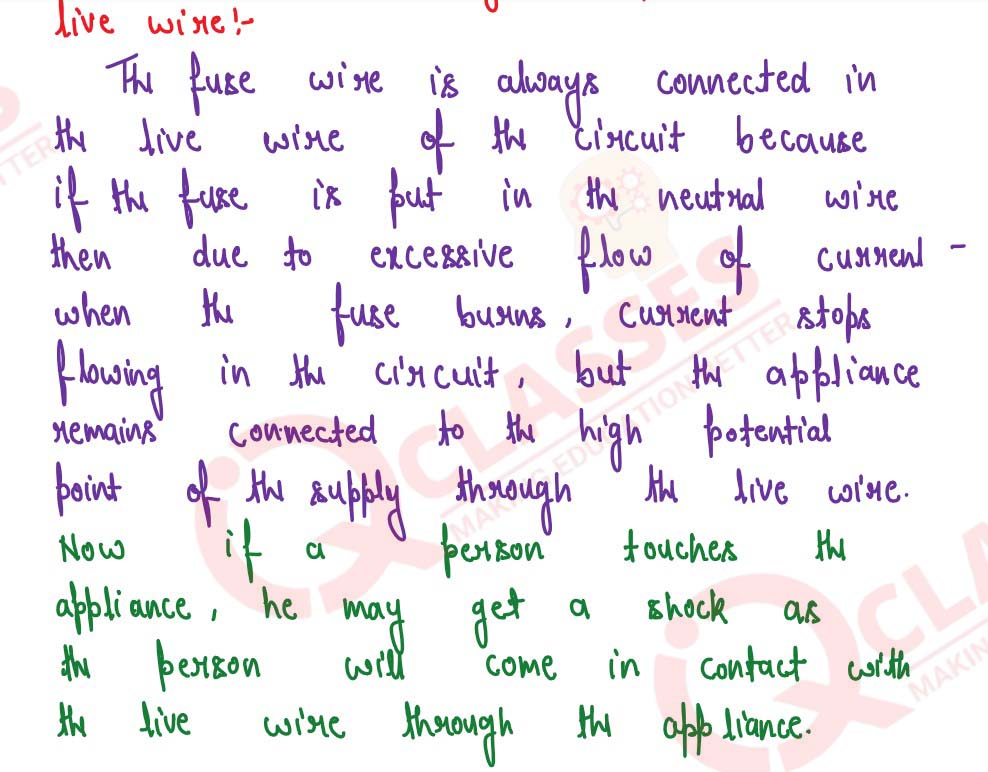 live wire:-
The fuse wire is always connected in
the live wire of the circuit because
if the fuse is put in the neutral wire
then due to excessive flow of current -
when the fuse burns, current stops
flowing in the circuit, but the appliance
remains connected to the high potential
point of the supply through the live wire.
Now if a person touches the
appliance, he may get a shock as
the person will come in contact with
the live wire through the appliance.
CLASSES
MAKING EDUCATION BETTER